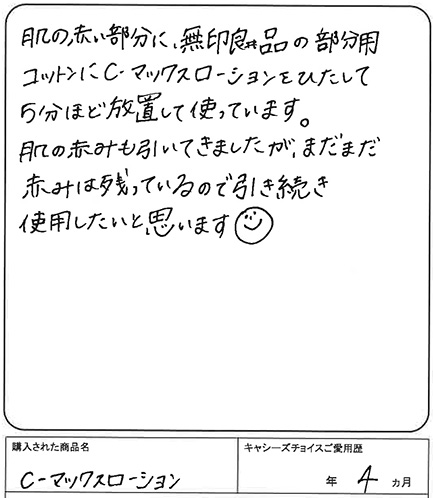 肌の赤い部分に、無印良品の部分用
コットンにC-マックスローションをひたして
5分ほど放置して使っています。
肌の赤みも引いてきましたが、まだまだ
赤みは残っているので引き続き
使用したいと思います
購入された商品名
C-マックスローション
キャシーズチョイスご愛用歴
年 4 ヵ月